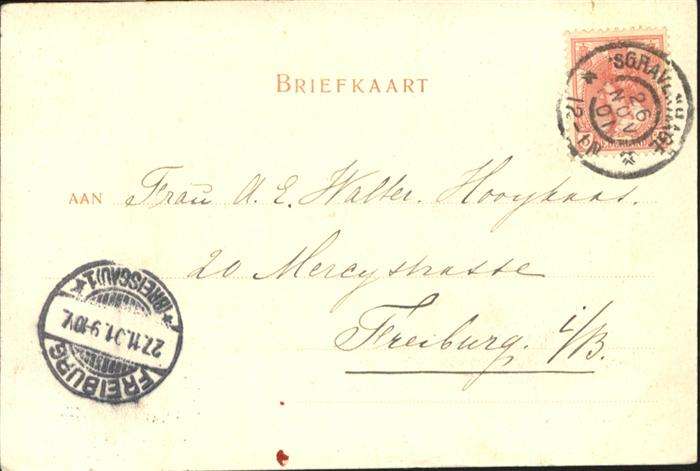 BRIEFKAART
'SGRAVENHAGE
26
NOV
01
12-1N
AAN Frau A. E. Walter. Hooykaas.
20 Mercystrasse
Freiburg i/B.
FREIBURG
27.11.01.9-10V.
*(BREISGAU)1*